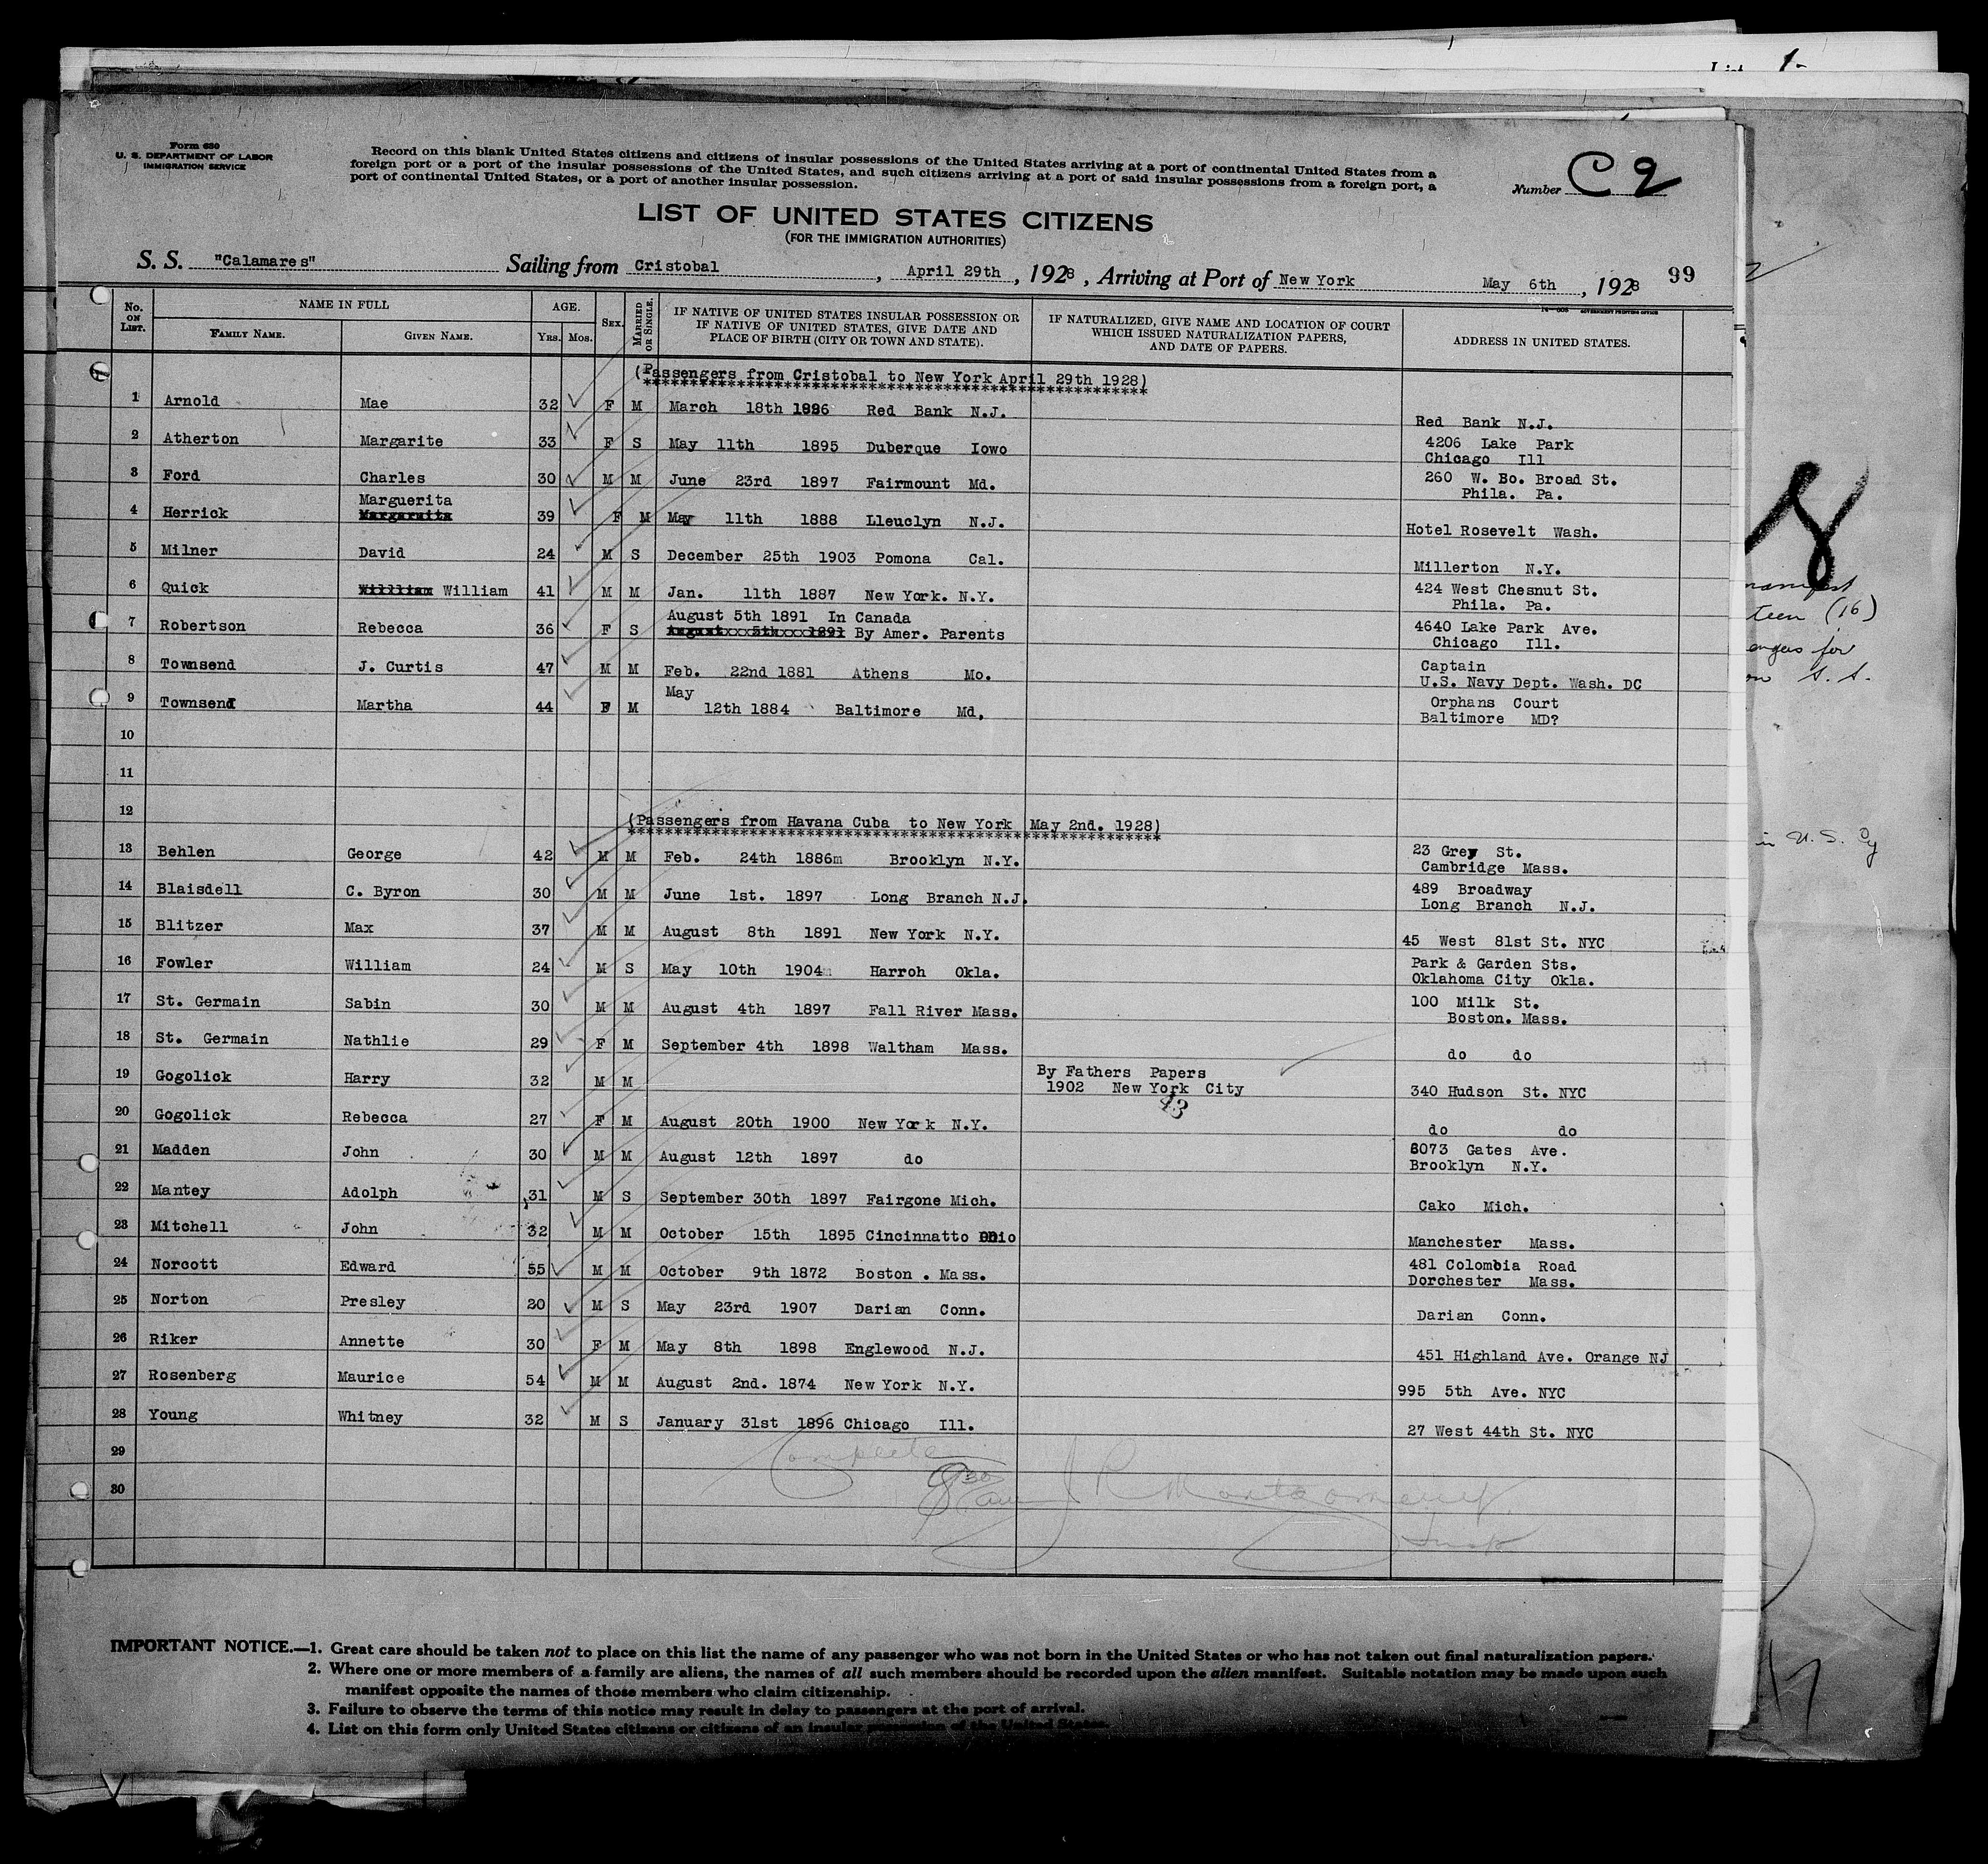 Form 630
U. S. DEPARTMENT OF LABOR
IMMIGRATION SERVICE
Record on this blank United States citizens and citizens of insular possessions of the United States arriving at a port of continental United States from a
foreign port or a port of the insular possessions of the United States, and such citizens arriving at a port of said insular possessions from a foreign port, a
port of continental United States, or a port of another insular possession.
Number C 2
LIST OF UNITED STATES CITIZENS
(FOR THE IMMIGRATION AUTHORITIES)
S. S. "Calamares" Sailing from Cristobal, April 29th, 1928, Arriving at Port of New York May 6th, 1928 99
No. ON LIST. NAME IN FULL FAMILY NAME. GIVEN NAME. AGE. YRS. MOS. SEX. MARRIED OR SINGLE. IF NATIVE OF UNITED STATES INSULAR POSSESSION OR IF NATIVE OF UNITED STATES, GIVE DATE AND PLACE OF BIRTH (CITY OR TOWN AND STATE). IF NATURALIZED, GIVE NAME AND LOCATION OF COURT WHICH ISSUED NATURALIZATION PAPERS, AND DATE OF PAPERS. ADDRESS IN UNITED STATES.
(Passengers from Cristobal to New York April 29th 1928)
1 Arnold Mae 32 F M March 18th 1896 Red Bank N.J. Red Bank N.J.
2 Atherton Margarite 33 F S May 11th 1895 Duberque Iowo 4206 Lake Park Chicago Ill
3 Ford Charles 30 M M June 23rd 1897 Fairmount Md. 260 W. Bo. Broad St. Phila. Pa.
4 Herrick Marguerita 39 F M May 11th 1888 Lleuclyn N.J. Hotel Rosevelt Wash.
5 Milner David 24 M S December 25th 1903 Pomona Cal. Millerton N.Y.
6 Quick William 41 M M Jan. 11th 1887 New York. N.Y. 424 West Chesnut St. Phila. Pa.
7 Robertson Rebecca 36 F S August 5th 1891 In Canada By Amer. Parents 4640 Lake Park Ave. Chicago Ill.
8 Townsend J. Curtis 47 M M Feb. 22nd 1881 Athens Mo. Captain U.S. Navy Dept. Wash. DC
9 Townsend Martha 44 F M May 12th 1884 Baltimore Md. Orphans Court Baltimore MD?
10
11
12
(Passengers from Havana Cuba to New York May 2nd. 1928)
13 Behlen George 42 M M Feb. 24th 1886m Brooklyn N.Y. 23 Grey St. Cambridge Mass.
14 Blaisdell C. Byron 30 M M June 1st. 1897 Long Branch N.J. 489 Broadway Long Branch N.J.
15 Blitzer Max 37 M M August 8th 1891 New York N.Y. 45 West 81st St. NYC
16 Fowler William 24 M S May 10th 1904 Harroh Okla. Park & Garden Sts. Oklahoma City Okla.
17 St. Germain Sabin 30 M M August 4th 1897 Fall River Mass. 100 Milk St. Boston. Mass.
18 St. Germain Nathlie 29 F M September 4th 1898 Waltham Mass. do do
19 Gogolick Harry 32 M M By Fathers Papers 1902 New York City 340 Hudson St. NYC
43
20 Gogolick Rebecca 27 F M August 20th 1900 New York N.Y. do do
21 Madden John 30 M M August 12th 1897 do 8073 Gates Ave. Brooklyn N.Y.
22 Mantey Adolph 31 M S September 30th 1897 Fairgone Mich. Cako Mich.
23 Mitchell John 32 M M October 15th 1895 Cincinnatto Ohio Manchester Mass.
24 Norcott Edward 55 M M October 9th 1872 Boston . Mass. 481 Colombia Road Dorchester Mass.
25 Norton Presley 20 M S May 23rd 1907 Darian Conn. Darian Conn.
26 Riker Annette 30 F M May 8th 1898 Englewood N.J. 451 Highland Ave. Orange NJ
27 Rosenberg Maurice 54 M M August 2nd. 1874 New York N.Y. 995 5th Ave. NYC
28 Young Whitney 32 M S January 31st 1896 Chicago Ill. 27 West 44th St. NYC
29
30
Complete
J R Montgomery
Insp
IMPORTANT NOTICE.—1. Great care should be taken not to place on this list the name of any passenger who was not born in the United States or who has not taken out final naturalization papers.
2. Where one or more members of a family are aliens, the names of all such members should be recorded upon the alien manifest. Suitable notation may be made upon such
manifest opposite the names of those members who claim citizenship.
3. Failure to observe the terms of this notice may result in delay to passengers at the port of arrival.
4. List on this form only United States citizens or citizens of an insular possession of the United States.
(16)
for
S. S.
in U. S.